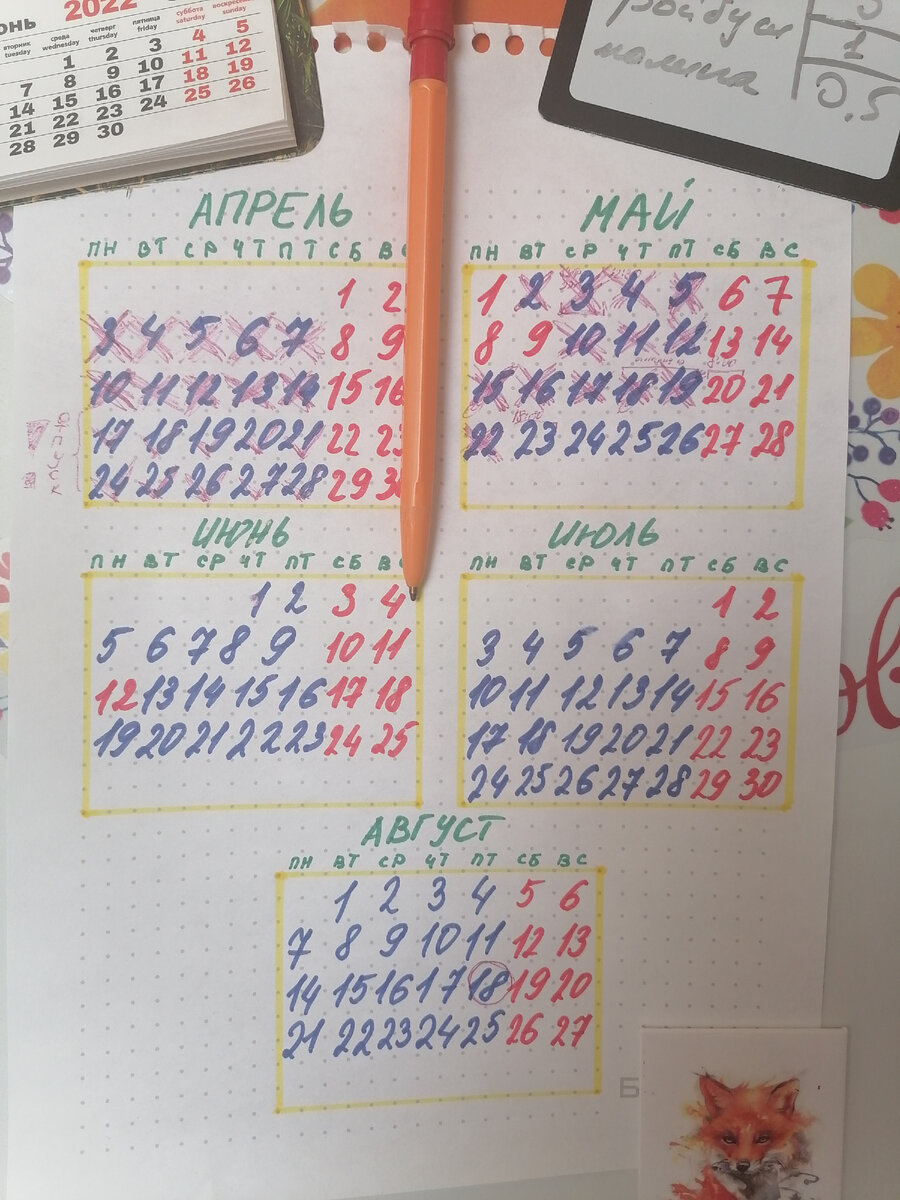 2022
вторник среда четверг пятница суббота воскресенье
tuesday wednesday thursday friday saturday sunday
1 2 3 4 5
7 8 9 10 11 12
14 15 16 17 18 19
21 22 23 24 25 26
28 29 30
малина
1
0.5
АПРЕЛЬ
ПН ВТ СР ЧТ ПТ СБ ВС
1 2
3 4 5 6 7 8 9
10 11 12 13 14 15 16
17 18 19 20 21 22 23
24 25 26 27 28 29 30
МАЙ
ПН ВТ СР ЧТ ПТ СБ ВС
1 2 3 4 5 6 7
8 9 10 11 12 13 14
15 16 17 18 19 20 21
22 23 24 25 26 27 28
ИЮНЬ
ПН ВТ СР ЧТ ПТ СБ ВС
1 2 3 4
5 6 7 8 9 10 11
12 13 14 15 16 17 18
19 20 21 22 23 24 25
ИЮЛЬ
ПН ВТ СР ЧТ ПТ СБ ВС
1 2
3 4 5 6 7 8 9
10 11 12 13 14 15 16
17 18 19 20 21 22 23
24 25 26 27 28 29 30
АВГУСТ
ПН ВТ СР ЧТ ПТ СБ ВС
1 2 3 4 5 6
7 8 9 10 11 12 13
14 15 16 17 18 19 20
21 22 23 24 25 26 27